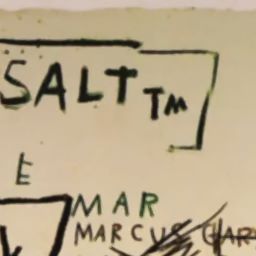 SALT TM
E
MAR
MARCUS GAR